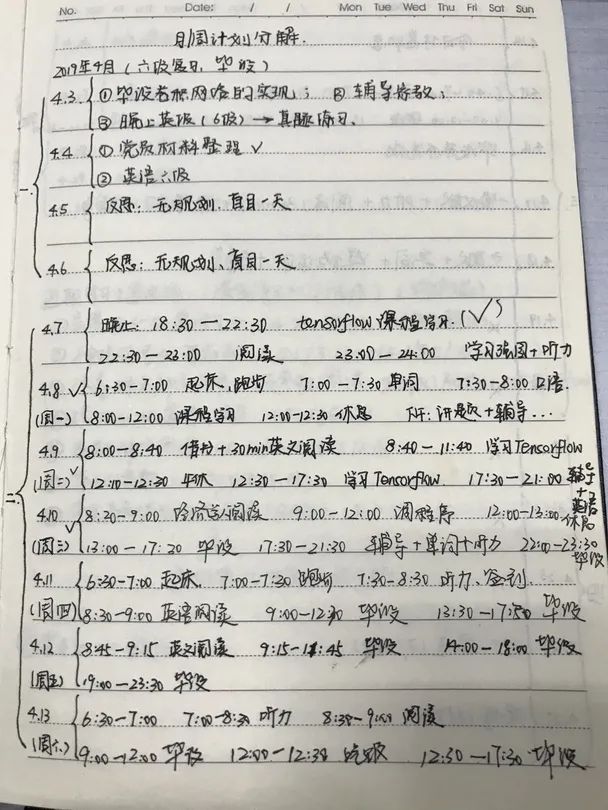 No. Date: / / Mon Tue Wed Thu Fri Sat Sun
月周计划分解.
2019年4月(六级复习、毕设)
一. 4.3 ①毕设卷积网络的实现; ②辅导
③晚上英级(6级)→真题练习.
4.4 ①党员材料整理 ✓
②英语六级
4.5 反思: 无规划, 盲目一天
4.6 反思: 无规划、盲目一天
二. 4.7 晚上: 18:30—22:30 tensorflow课程学习.(✓)
22:30—23:00 阅读 23:00—24:00 学习强国+听力
4.8 ✓ 6:30-7:00 起床,跑步 7:00-7:30 单词 7:30-8:00 口语.
(周一) 8:00-12:00 课程学习 12:00-12:30 休息 下午: 讲题+辅导...
4.9 8:00-8:40 +30min英文阅读 8:40—11:40 学习Tensorflow
(周二) ✓ 12:10-12:30 午休 12:30-17:30 学习Tensorflow. 17:30-21:00 辅导+英语
4.10 ✓ 8:20-9:00 经济学人阅读 9:00-12:00 调程序 12:00-13:00 休息
(周三) 13:00-17:20 毕设 17:30-21:30 辅导+单词+听力 22:00-23:30 毕设
4.11 6:30-7:00 起床. 7:00-7:30 跑步 7:30-8:30 听力、签到.
(周四) 8:30-9:00 英语阅读 9:00-12:30 毕设 13:30-17:50 毕设
4.12 8:45-9:15 英文阅读 9:15-11:45 毕设 14:00-18:00 毕设
(周五) 19:00-23:30 毕设
4.13 6:30-7:00 7:00-8:30 听力 8:30-9:00 阅读
(周六) 9:00-12:00 毕设 12:00-12:30 吃饭 12:30-17:30 毕设